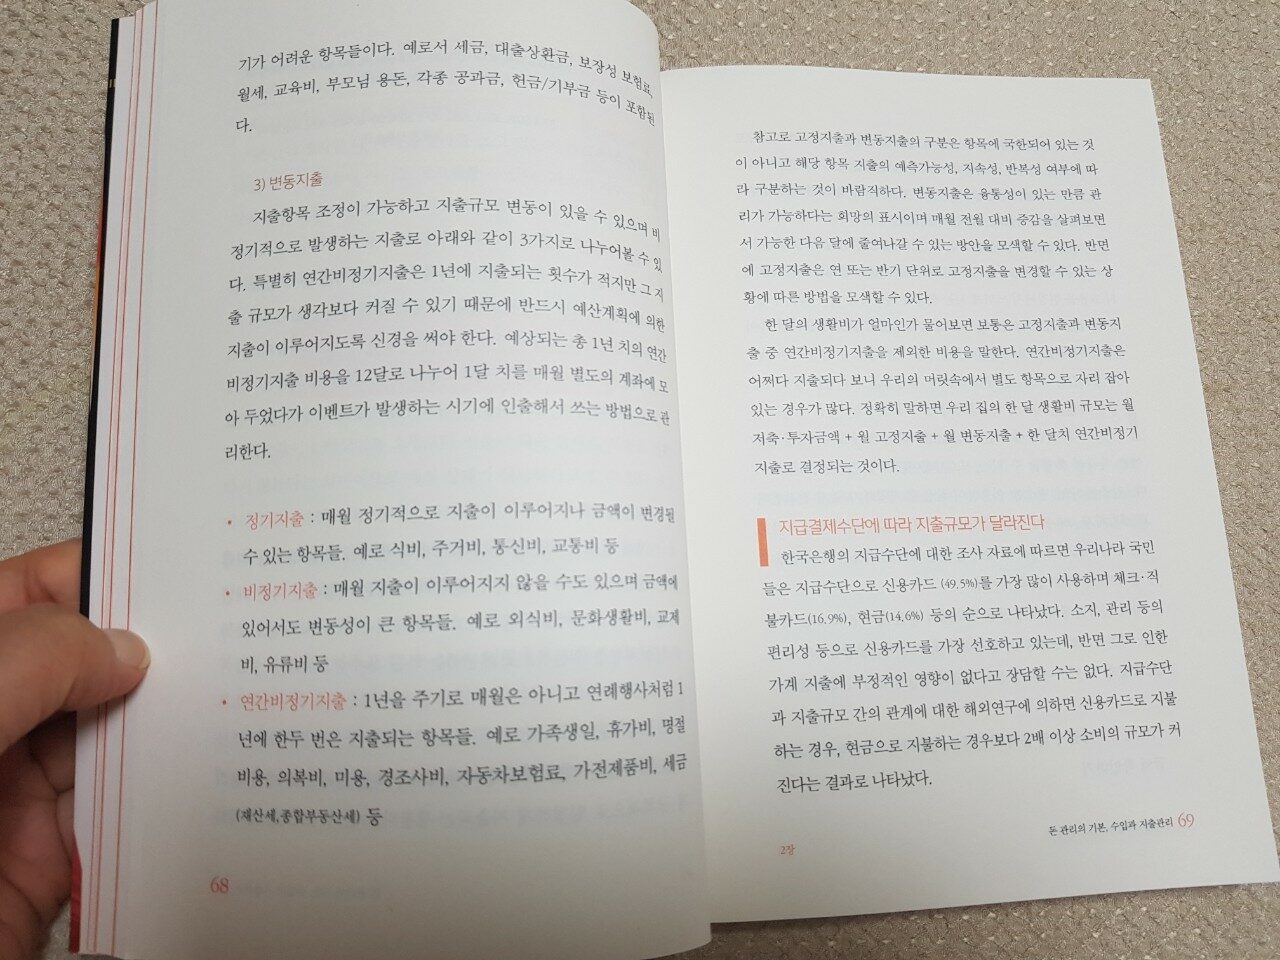 기가 어려운 항목들이다. 예로서 세금, 대출상환금, 보장성 보험료,
월세, 교육비, 부모님 용돈, 각종 공과금, 헌금/기부금 등이 포함된
다.
3) 변동지출
지출항목 조정이 가능하고 지출규모 변동이 있을 수 있으며 비
정기적으로 발생하는 지출로 아래와 같이 3가지로 나누어볼 수 있
다. 특별히 연간비정기지출은 1년에 지출되는 횟수가 적지만 그 지
출 규모가 생각보다 커질 수 있기 때문에 반드시 예산계획에 의한
지출이 이루어지도록 신경을 써야 한다. 예상되는 총 1년 치의 연간
비정기지출 비용을 12달로 나누어 1달 치를 매월 별도의 계좌에 모
아 두었다가 이벤트가 발생하는 시기에 인출해서 쓰는 방법으로 관
리한다.
• 정기지출 : 매월 정기적으로 지출이 이루어지나 금액이 변경될
수 있는 항목들. 예로 식비, 주거비, 통신비, 교통비 등
• 비정기지출 : 매월 지출이 이루어지지 않을 수도 있으며 금액에
있어서도 변동성이 큰 항목들. 예로 외식비, 문화생활비, 교제
비, 유류비 등
• 연간비정기지출 : 1년을 주기로 매월은 아니고 연례행사처럼 1
년에 한두 번은 지출되는 항목들. 예로 가족생일, 휴가비, 명절
비용, 의복비, 미용, 경조사비, 자동차보험료, 가전제품비, 세금
(재산세,종합부동산세) 등
68
참고로 고정지출과 변동지출의 구분은 항목에 국한되어 있는 것
이 아니고 해당 항목 지출의 예측가능성, 지속성, 반복성 여부에 따
라 구분하는 것이 바람직하다. 변동지출은 융통성이 있는 만큼 관
리가 가능하다는 희망의 표시이며 매월 전월 대비 증감을 살펴보면
서 가능한 다음 달에 줄여나갈 수 있는 방안을 모색할 수 있다. 반면
에 고정지출은 연 또는 반기 단위로 고정지출을 변경할 수 있는 상
황에 따른 방법을 모색할 수 있다.
한 달의 생활비가 얼마인가 물어보면 보통은 고정지출과 변동지
출 중 연간비정기지출을 제외한 비용을 말한다. 연간비정기지출은
어쩌다 지출되다 보니 우리의 머릿속에서 별도 항목으로 자리 잡아
있는 경우가 많다. 정확히 말하면 우리 집의 한 달 생활비 규모는 월
저축·투자금액 + 월 고정지출 + 월 변동지출 + 한 달치 연간비정기
지출로 결정되는 것이다.
지급결제수단에 따라 지출규모가 달라진다
한국은행의 지급수단에 대한 조사 자료에 따르면 우리나라 국민
들은 지급수단으로 신용카드(49.5%)를 가장 많이 사용하며 체크·직
불카드(16.9%), 현금(14.6%) 등의 순으로 나타났다. 소지, 관리 등의
편리성 등으로 신용카드를 가장 선호하고 있는데, 반면 그로 인한
가계 지출에 부정적인 영향이 없다고 장담할 수는 없다. 지급수단
과 지출규모 간의 관계에 대한 해외연구에 의하면 신용카드로 지불
하는 경우, 현금으로 지불하는 경우보다 2배 이상 소비의 규모가 커
진다는 결과로 나타났다.
돈 관리의 기본, 수입과 지출관리 69
2장